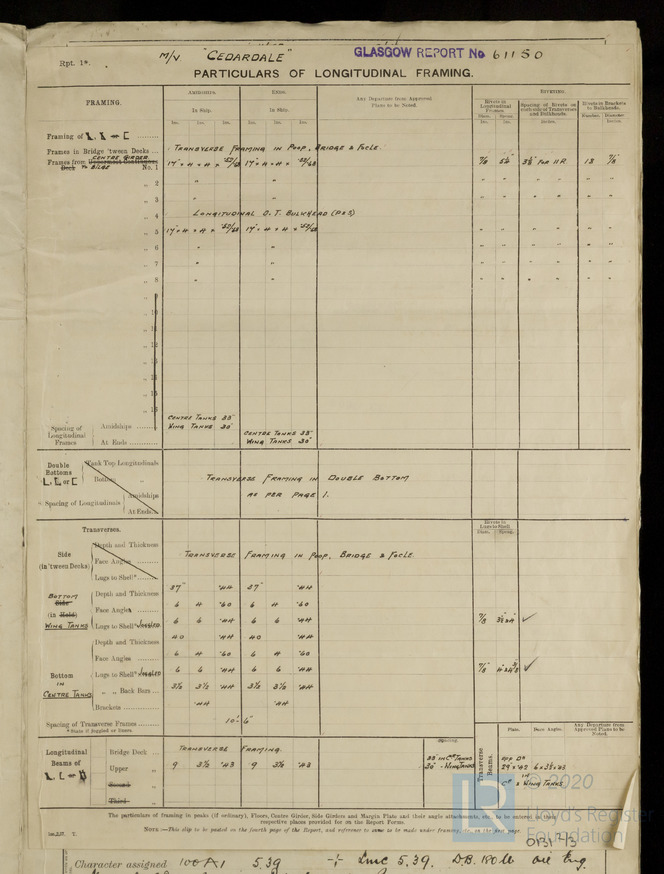 Rpt. 1*.
M/V "CEDARDALE"
GLASGOW REPORT No 61150
PARTICULARS OF LONGITUDINAL FRAMING.
FRAMING.
AMIDSHIPS.
ENDS.
Any Departure from Approved Plans to be Noted.
RIVETING.
In Ship.
In Ship.
Rivets in Longitudinal Frames.
Spacing of Rivets on each side of Transverses and Bulkheads.
Rivets in Brackets to Bulkheads.
Ins. Ins. Ins. Ins. Ins. Ins.
Diam. Spcng.
Number. Diameter
Ins. Ins. Inches. Inches.
Framing of L, L or [
Frames in Bridge 'tween Decks ...
TRANSVERSE FRAMING IN POOP, BRIDGE & FOCLE.
Frames from CENTRE GIRDER TO BILGE No. 1
17" × 4 × 4 ×
17" × 4 × 4 ×
7/8
FOR 11 R.
18
7/8
" 2 " "
" 3 " "
" 4 LONGITUDINAL O.T. BULKHEAD (P&S)
" 5 17" × 4 × 4 × 17" × 4 × 4 ×
" 6 " "
" 7 " "
" 8 " "
Spacing of Longitudinal Frames
Amidships
CENTRE TANKS 33"
WING TANKS 30"
At Ends
CENTRE TANKS 33"
WING TANKS 30"
Double Bottoms L, L or [
Tank Top Longitudinals
Bottom "
TRANSVERSE FRAMING IN DOUBLE BOTTOM
AS PER PAGE 1.
Spacing of Longitudinals
Amidships
At Ends
Transverses.
Rivets in Lugs to Shell
Diam. Spcng.
Side (in 'tween Decks)
Depth and Thickness
Face Angles
Lugs to Shell*
TRANSVERSE FRAMING IN POOP, BRIDGE & FOCLE.
BOTTOM Side (in Hold) WING TANKS
Depth and Thickness 37" .44 37" .44
Face Angles 6 4 .60 6 4 .60
Lugs to Shell* JOGGLED 6 6 .44 6 6 .44 7/8
Bottom IN CENTRE TANKS
Depth and Thickness 40 .44 40 .44
Face Angles 6 4 .60 6 4 .60
Lugs to Shell* JOGGLED 6 6 .44 6 6 .44 7/8
" " Back Bars 3½ 3½ .44 3½ 3½ .44
Brackets .44 .44
Spacing of Transverse Frames 10'-6"
*State if joggled or liners.
Longitudinal Beams of L, [
Bridge Deck ... TRANSVERSE FRAMING.
Upper " 9 3½ .43 9 3½ .43
Second "
Third "
Spacing.
33" IN CR TANKS
30" - WING TANKS
Transverse Beams.
Plate. Face Angle. Any Departure from Approved Plans to be Noted.
UPP DK
29 × .42 6 × 3½ × .43
IN
CR & WING TANKS
The particulars of framing in peaks (if ordinary), Floors, Centre Girder, Side Girders and Margin Plate and their angle attachments, etc., to be entered in their
respective places provided for on the Report Forms.
NOTE.—This slip to be pasted on the fourth page of the Report, and reference to same to be made under framing, etc. on the page.
© 2020
Lloyd's Register
Foundation
LR
Character assigned 100A1 5.39 LMC 5.39. D.B. 180 lb Oil Eng.